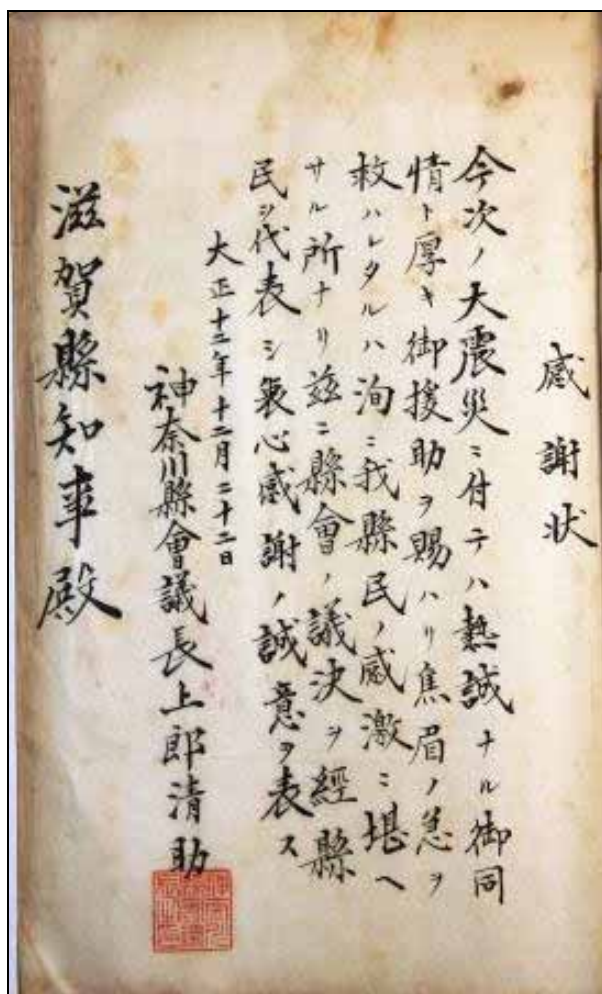 感謝状
今次ノ大震災ニ付テハ熱誠ナル御同
情ト厚キ御援助ヲ賜ハリ焦眉ノ急ヲ
救ハレタルハ洵ニ我縣民ノ感激ニ堪ヘ
サル所ナリ茲ニ縣會ノ議決ヲ經縣
民ヲ代表シ衷心感謝ノ誠意ヲ表ス
大正十二年十二月二十二日
神奈川縣會議長上郎清助
滋賀縣知事殿